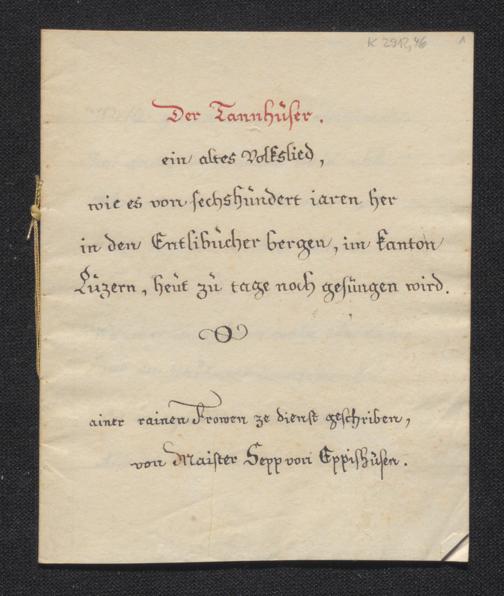 K 2912,46
1
Der Tannhüser.
ein altes Volkslied,
wie es von sechshundert iaren her
in den Entlibucher bergen, im kanton
Luzern, heut zu tage noch gesungen wird.
ainer rainen Frowen ze dienst geschriben,
von Maister Sepp von Eppishusen.